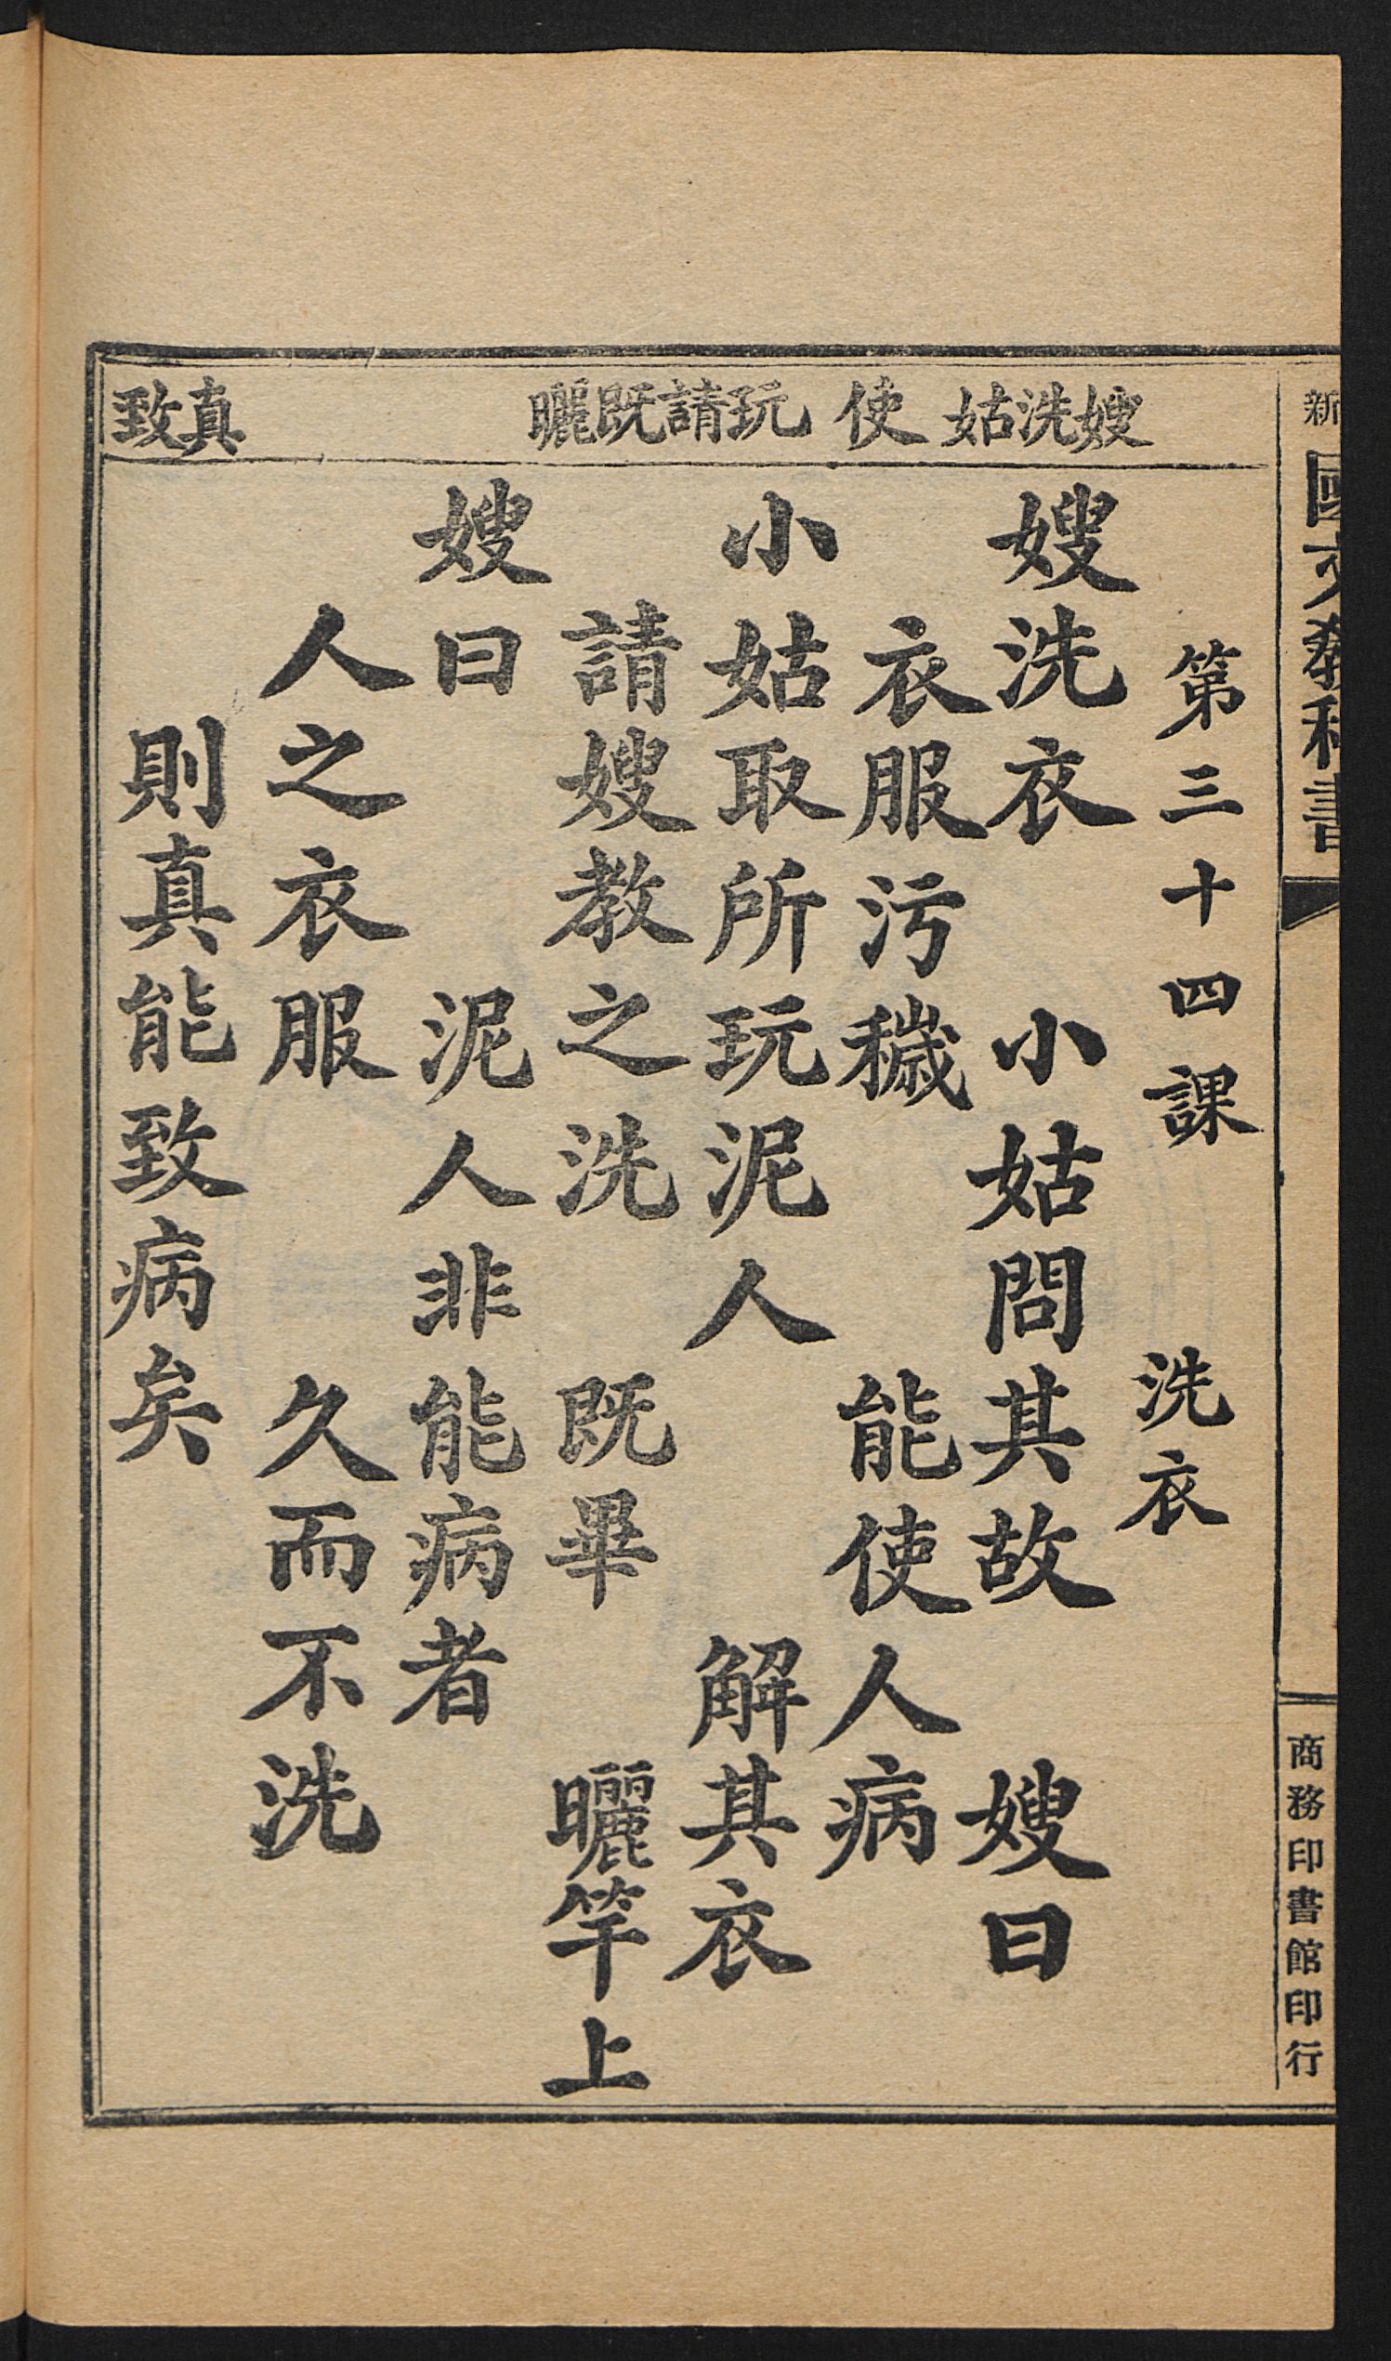 新國文教科書
商務印書館印行
第三十四課 洗衣
嫂洗姑 使 玩請既曬 真致
嫂洗衣 小姑問其故 嫂曰
衣服污穢 能使人病
小姑取所玩泥人 解其衣
請嫂教之洗 既畢 曬竿上
嫂曰 泥人非能病者
人之衣服 久而不洗
則真能致病矣